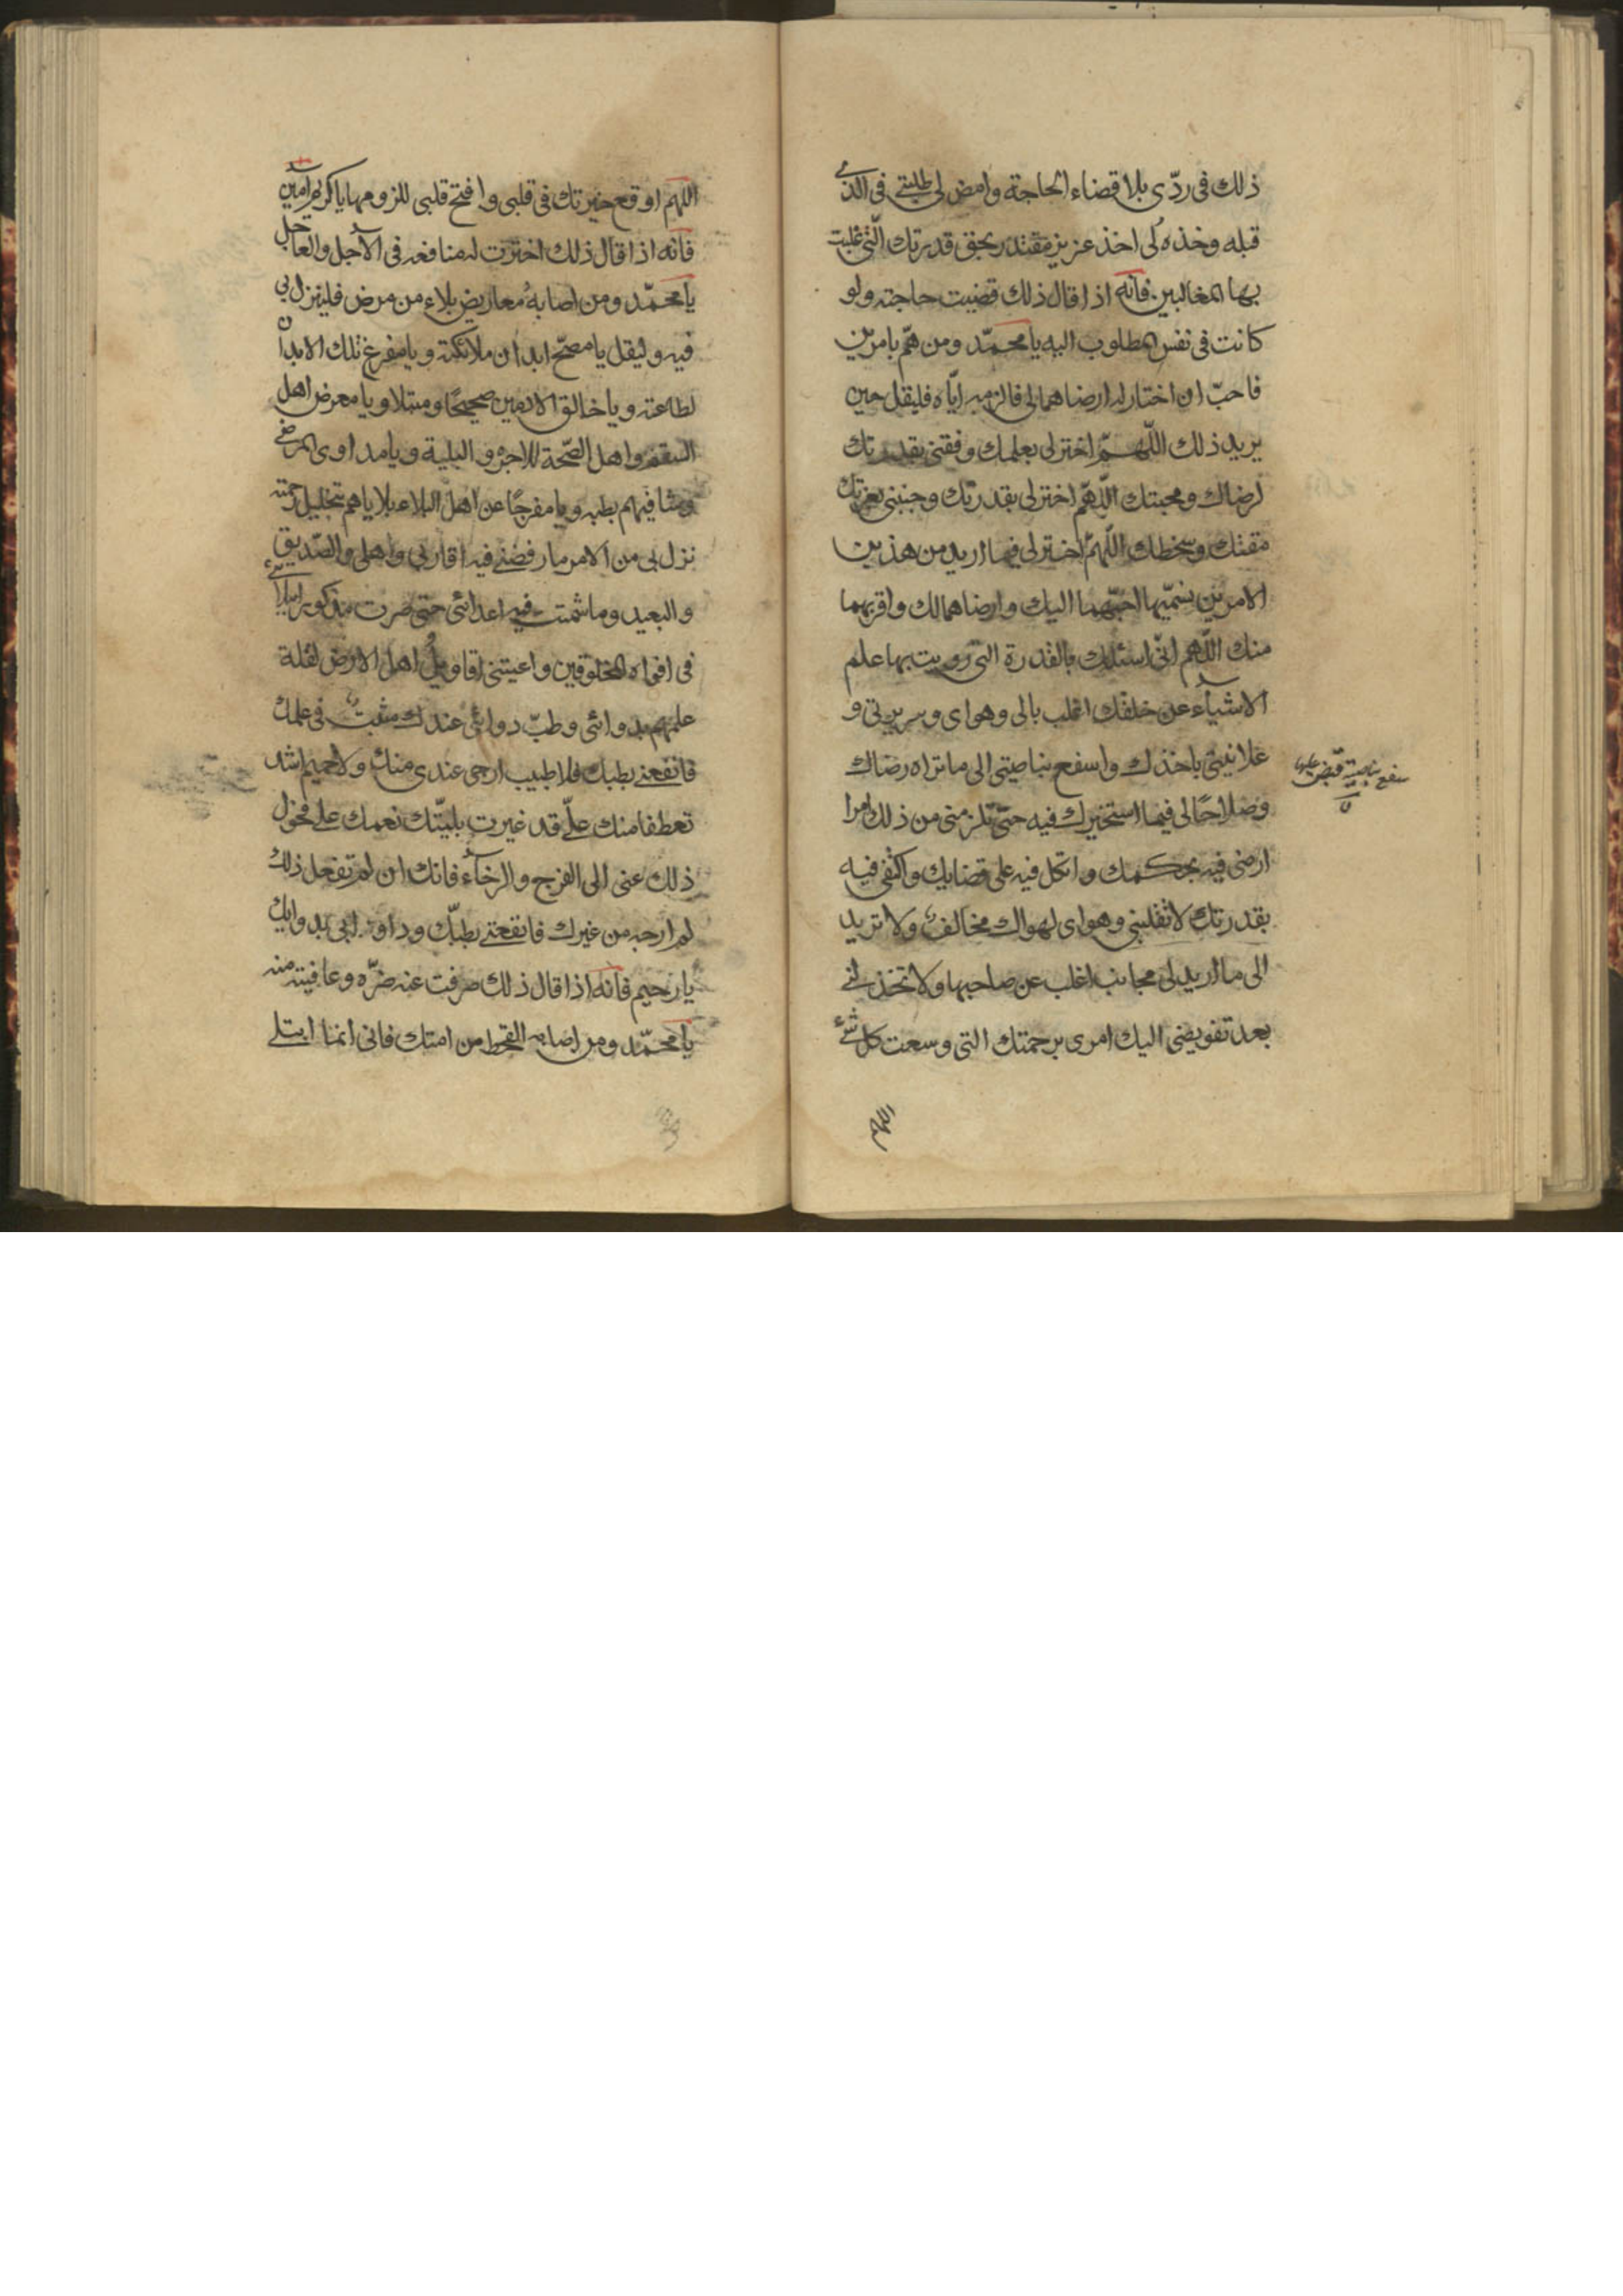 ذلك فى ردّى بلا قضاء الحاجة وامض لى طلبتى فى الذى
قبله وخذه لى اخذ عزيز مقتدر بحق قدرتك الّتى غلبت
بها المغالبين فانّه اذا قال ذلك قضيت حاجته ولو
كانت فى نفس المطلوب اليه يا محمّد ومن همّ بامرين
فاحبّ ان اختار له ارضاهما لى فالزمه ايّاه فليقل حين
يريد ذلك اللّهمّ اختر لى بعلمك ووفقنى بقدرتك
لرضاك ومحبتك اللّهمّ اختر لى بقدرتك وجنبنى بعزتك
مقتك وسخطك اللّهمّ اختر لى فيما اريد من هذين
الامرين يسمّيهما احبّهما اليك وارضاهما لك واقربهما
منك اللّهم انّى اسئلك بالقدرة التى زويت بها علم
الاشياء عن خلقك اغلب بالى وهواى وسريرتى و
علانيتى باخذك واسفع بناصيتى الى ما تراه رضاك
وصلاحًا لى فيما استخيرك فيه حتّى تلزمنى من ذلك امرا
ارضى فيه بحكمك واتكل فيه على قضايك واكتفى فيه
بقدرتك لا تقلبنى وهواى لهواك مخالف ولا تريد
الى ما اريد لى مجانب اغلب عن صاحبها ولا تخذلنى
بعد تفويضى اليك امرى برحمتك التى وسعت كل شئ
سفع بناصيته قبض عليها
اللهم
اللهم اوقع خيرتك فى قلبى وافتح قلبى للزومها يا كريم امين
فانه اذا قال ذلك اخترت له منافعه فى الآجل والعاجل
يا محمّد ومن اصابه معاريض بلاء من مرض فلينزل بى
فيه وليقل يا مصحّ ابدان ملائكته ويا مفرغ تلك الابدان
لطاعته ويا خالق الادمين صحيحًا ومبتلا ويا معرض اهل
السقم واهل الصّحة للاجر و البلية ويا مداوى المرضى
وشافيهم بطبه ويا مفرجًا عن اهل البلاء بلاياهم بتجليل رحمته
نزل بى من الامر ما رفضنى فيه اقاربى واهلى والصّديق
والبعيد وما شمت فيه اعدائى حتى صرت مذكورا ببلائى
فى افواه المخلوقين واعيتنى اقاويل اهل الارض لقلة
علمهم بدوائى وطبّ دوائى عندك مثبت فى علمك
فانفعنى بطبك فلا طبيب ارجى عندى منك ولا حميم اشد
تعطفا منك علىّ قد غيرت بليّتك نعمك على فحول
ذلك عنى الى الفرج والرخاء فانك ان لم تفعل ذلك
لم ارجه من غيرك فانفعنى بطبّك وداو بى بدوايك
يا رحيم فانه اذا قال ذلك صرفت عنه ضرّه وعافيته منه
يا محمّد ومن اصابه القحط من امتك فانى انما ابتلى